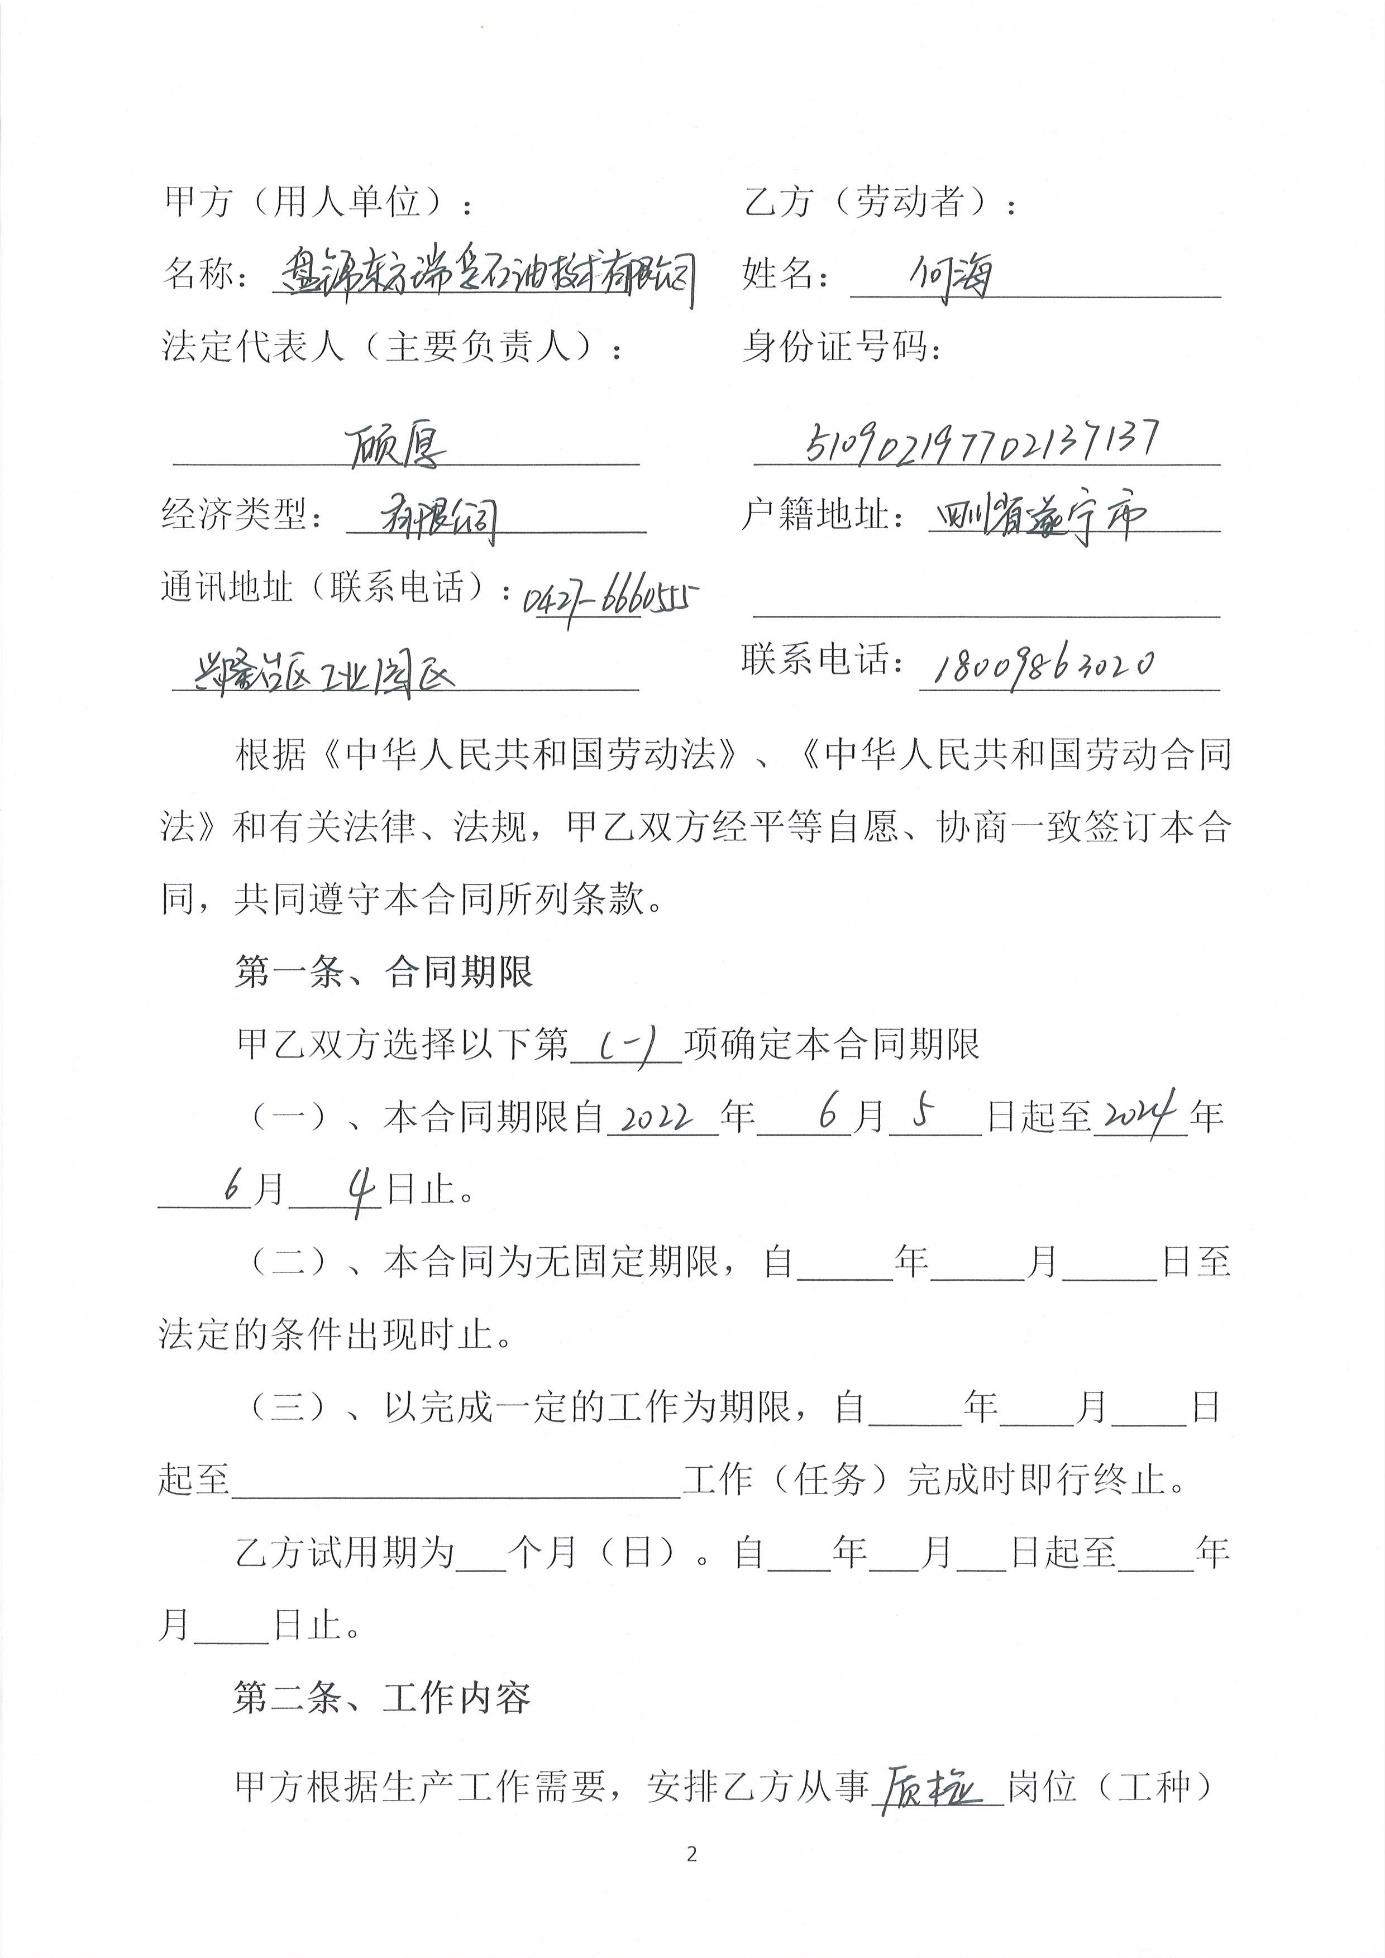 甲方（用人单位）：
乙方（劳动者）：
名称：盘锦东方瑞 石油技术有限公司
姓名：何海
法定代表人（主要负责人）：
身份证号码：
顾厚
510902197702137137
经济类型：有限公司
户籍地址：四川省遂宁市
通讯地址（联系电话）：0427-6660555
兴隆台区工业园区
联系电话：18009863020
根据《中华人民共和国劳动法》、《中华人民共和国劳动合同
法》和有关法律、法规，甲乙双方经平等自愿、协商一致签订本合
同，共同遵守本合同所列条款。
第一条、合同期限
甲乙双方选择以下第（一）项确定本合同期限
（一）、本合同期限自2022年6月5日起至2024年
6月4日止。
（二）、本合同为无固定期限，自_____年_____月_____日至
法定的条件出现时止。
（三）、以完成一定的工作为期限，自_____年____月____日
起至________________________工作（任务）完成时即行终止。
乙方试用期为___个月（日）。自___年___月___日起至____年
月____日止。
第二条、工作内容
甲方根据生产工作需要，安排乙方从事质检岗位（工种）
2